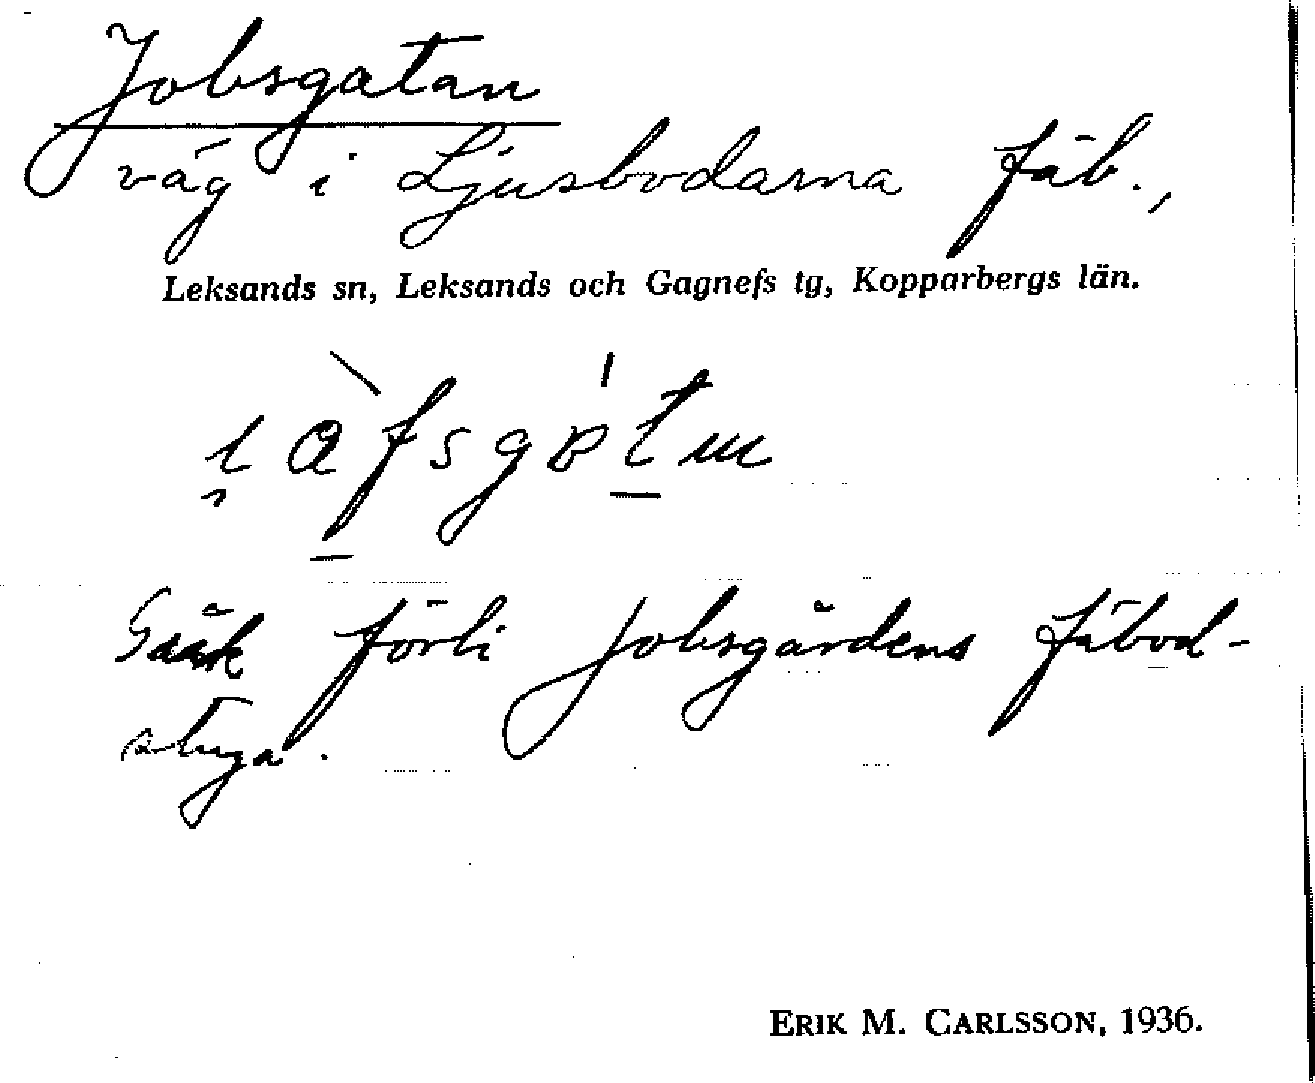 Jobsgatan
väg i Ljusbodarna fäb.,
Leksands sn, Leksands och Gagnefs tg, Kopparbergs län.
förbi Jobsgårdens fäbod-
stuga.
ERIK M. CARLSSON, 1936.